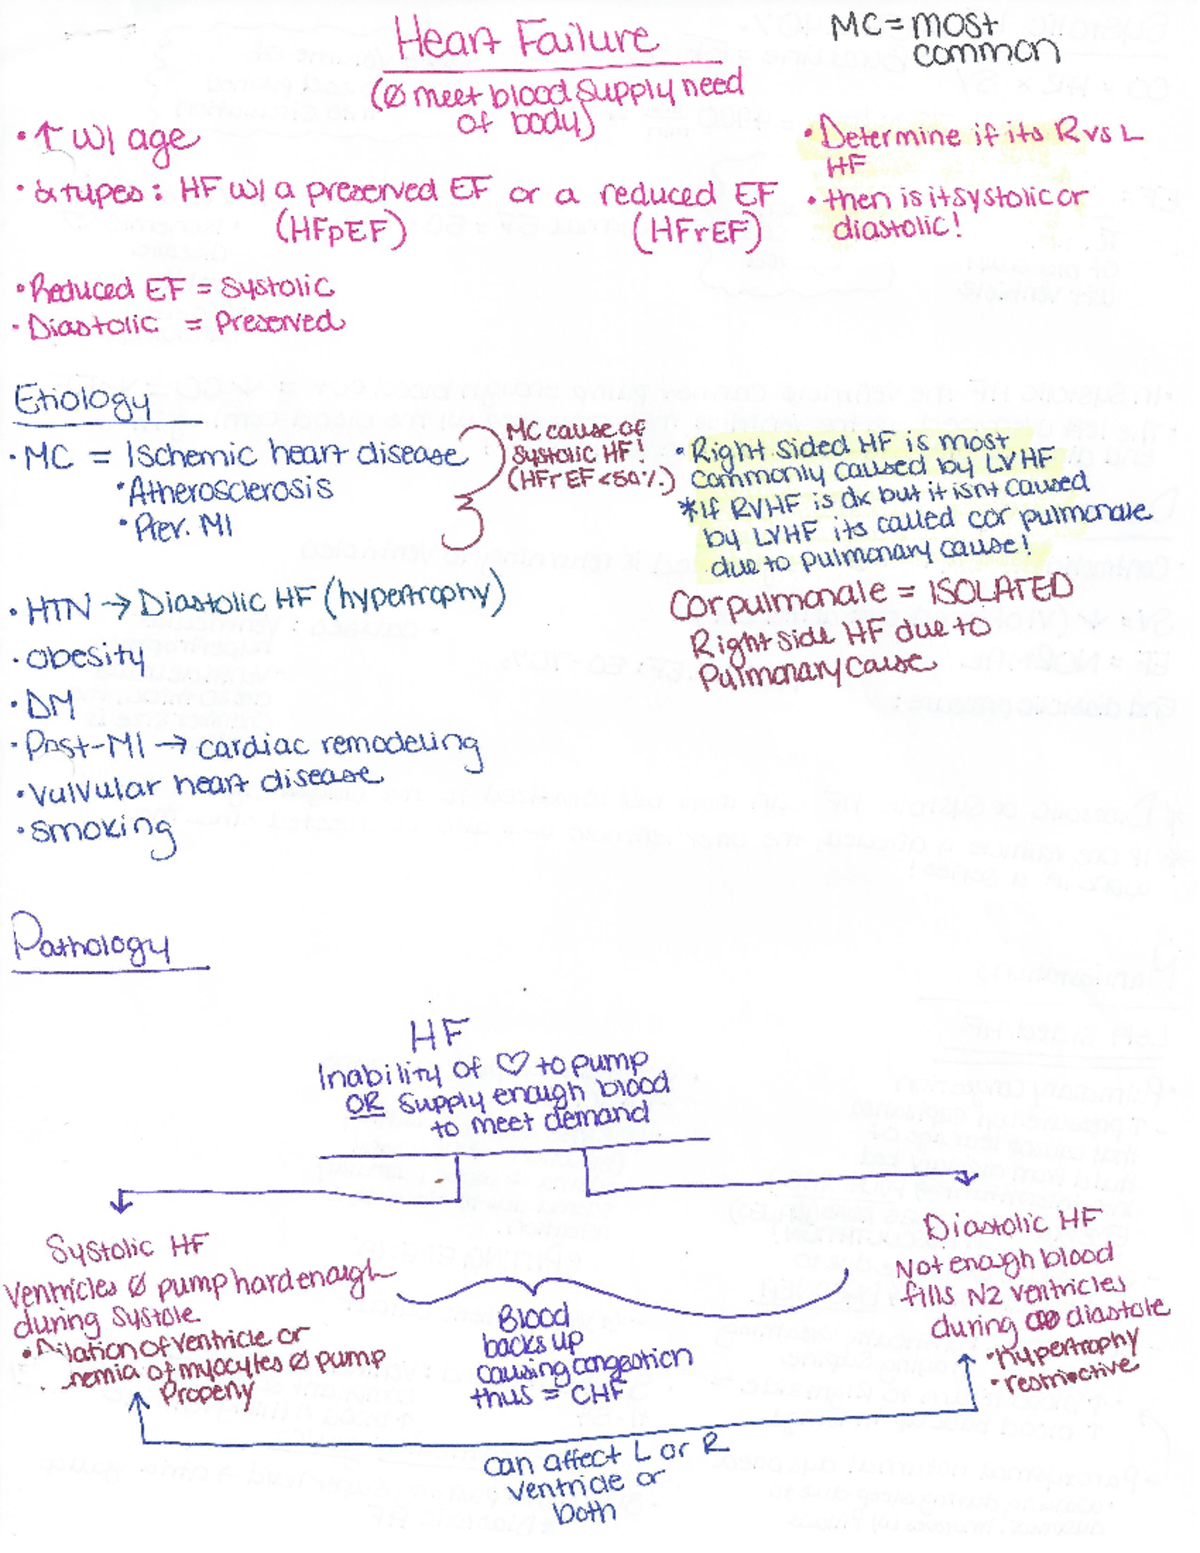 Heart Failure
(Ø meet blood supply need
of body)
MC = most
common
• ↑ w/ age
• 2 types: HF w/ a preserved EF or a reduced EF
(HFpEF) (HFrEF)
• Determine if its R vs L
HF
• then is it systolic or
diastolic!
• Reduced EF = Systolic
• Diastolic = Preserved
Etiology
• MC = Ischemic heart disease
• Atherosclerosis
• Prev. MI
MC cause of
Systolic HF!
(HFrEF <50%)
• HTN → Diastolic HF (hypertrophy)
• obesity
• DM
• Post-MI → cardiac remodeling
• Vulvular heart disease
• smoking
• Right sided HF is most
commonly caused by LVHF
*If RVHF is dx but it isnt caused
by LVHF its called cor pulmonale
due to pulmonary cause!
Cor pulmonale = ISOLATED
Right side HF due to
Pulmonary Cause
Pathology
HF
Inability of ♡ to pump
OR supply enough blood
to meet demand
Systolic HF
Ventricles Ø pump hard enough
during systole
• Dilation of ventricle or
of myocytes Ø pump
Properly
Blood
backs up
causing congestion
thus = CHF
Diastolic HF
Not enough blood
fills N2 ventricles
during diastole
• hypertrophy
• restrictive
can affect L or R
ventricle or
both